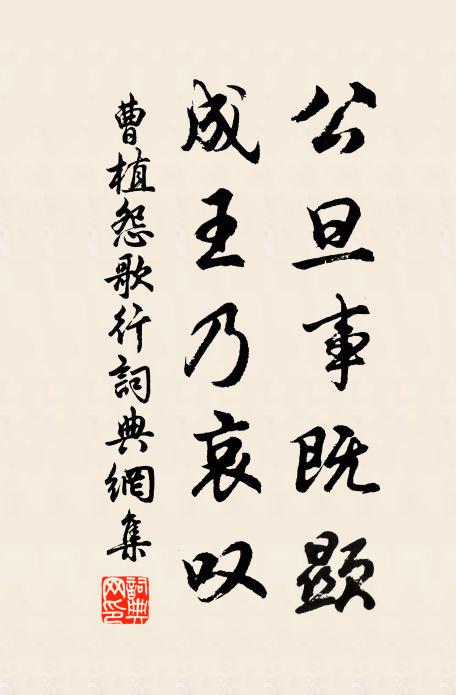 公旦事既显
成王乃哀叹
曹植怨歌行詞典網集
詞典网印